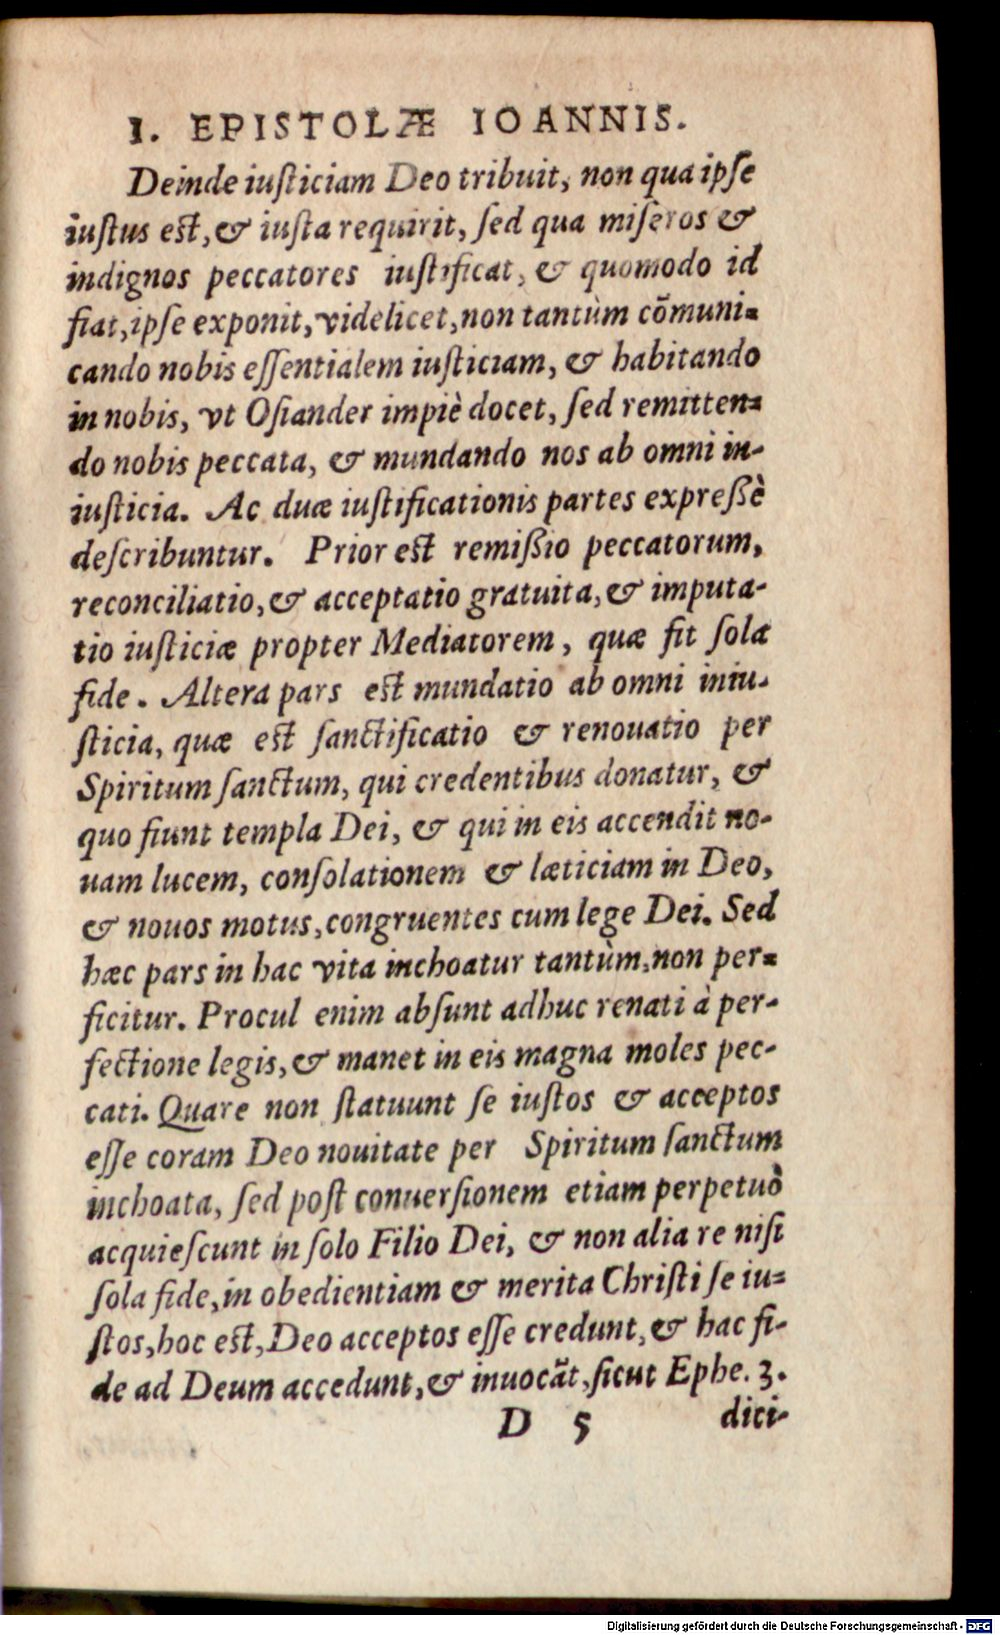 I. EPISTOLÆ IOANNIS.
Deinde iusticiam Deo tribuit, non qua ipſe
iuſtus eſt, & iuſta requirit, ſed qua miſeros &
indignos peccatores iuſtificat, & quomodo id
fiat, ipſe exponit, videlicet, non tantùm cõmuni-
cando nobis eſſentialem iuſticiam, & habitando
in nobis, vt Oſiander impiè docet, ſed remitten-
do nobis peccata, & mundando nos ab omni in-
iuſticia. Ac duæ iuſtificationis partes expreßè
deſcribuntur. Prior eſt remißio peccatorum,
reconciliatio, & acceptatio gratuita, & imputa-
tio iuſticiæ propter Mediatorem, quæ fit ſola
fide. Altera pars eſt mundatio ab omni iniu-
ſticia, quæ eſt ſanctificatio & renouatio per
Spiritum ſanctum, qui credentibus donatur, &
quo fiunt templa Dei, & qui in eis accendit no-
uam lucem, conſolationem & læticiam in Deo,
& nouos motus, congruentes cum lege Dei. Sed
hæc pars in hac vita inchoatur tantùm, non per-
ficitur. Procul enim abſunt adhuc renati à per-
fectione legis, & manet in eis magna moles pec-
cati. Quare non ſtatuunt ſe iuſtos & acceptos
eſſe coram Deo nouitate per Spiritum ſanctum
inchoata, ſed poſt conuerſionem etiam perpetuò
acquieſcunt in ſolo Filio Dei, & non alia re niſi
ſola fide, in obedientiam & merita Chriſti ſe iu-
ſtos, hoc eſt, Deo acceptos eſſe credunt, & hac fi-
de ad Deum accedunt, & inuocãt, ſicut Ephe. 3.
D 5 dici-
Digitalisierung gefördert durch die Deutsche Forschungsgemeinschaft - DFG